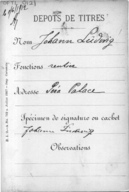 DÉPÔTS DE TITRES
Nom Johann Ludwig
Fonctions rentier
Adresse Palace
Spécimen de signature ou cachet
Johann Ludwig
Observations